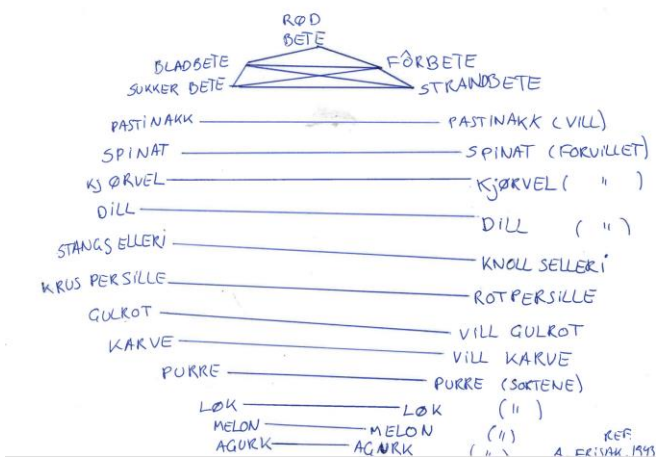 RØD
BETE
BLADBETE FÔRBETE
SUKKER BETE STRANDBETE
PASTINAKK PASTINAKK (VILL)
SPINAT SPINAT (FORVILLET)
KJØRVEL KJØRVEL ( " )
DILL DILL ( " )
STANGSELLERI KNOLLSELLERI
KRUS PERSILLE ROTPERSILLE
GULROT VILL GULROT
KARVE VILL KARVE
PURRE PURRE (SORTENE)
LØK LØK ( " )
MELON MELON ( " ) REF.
AGURK AGURK ( " ) A. FRISAK. 1943